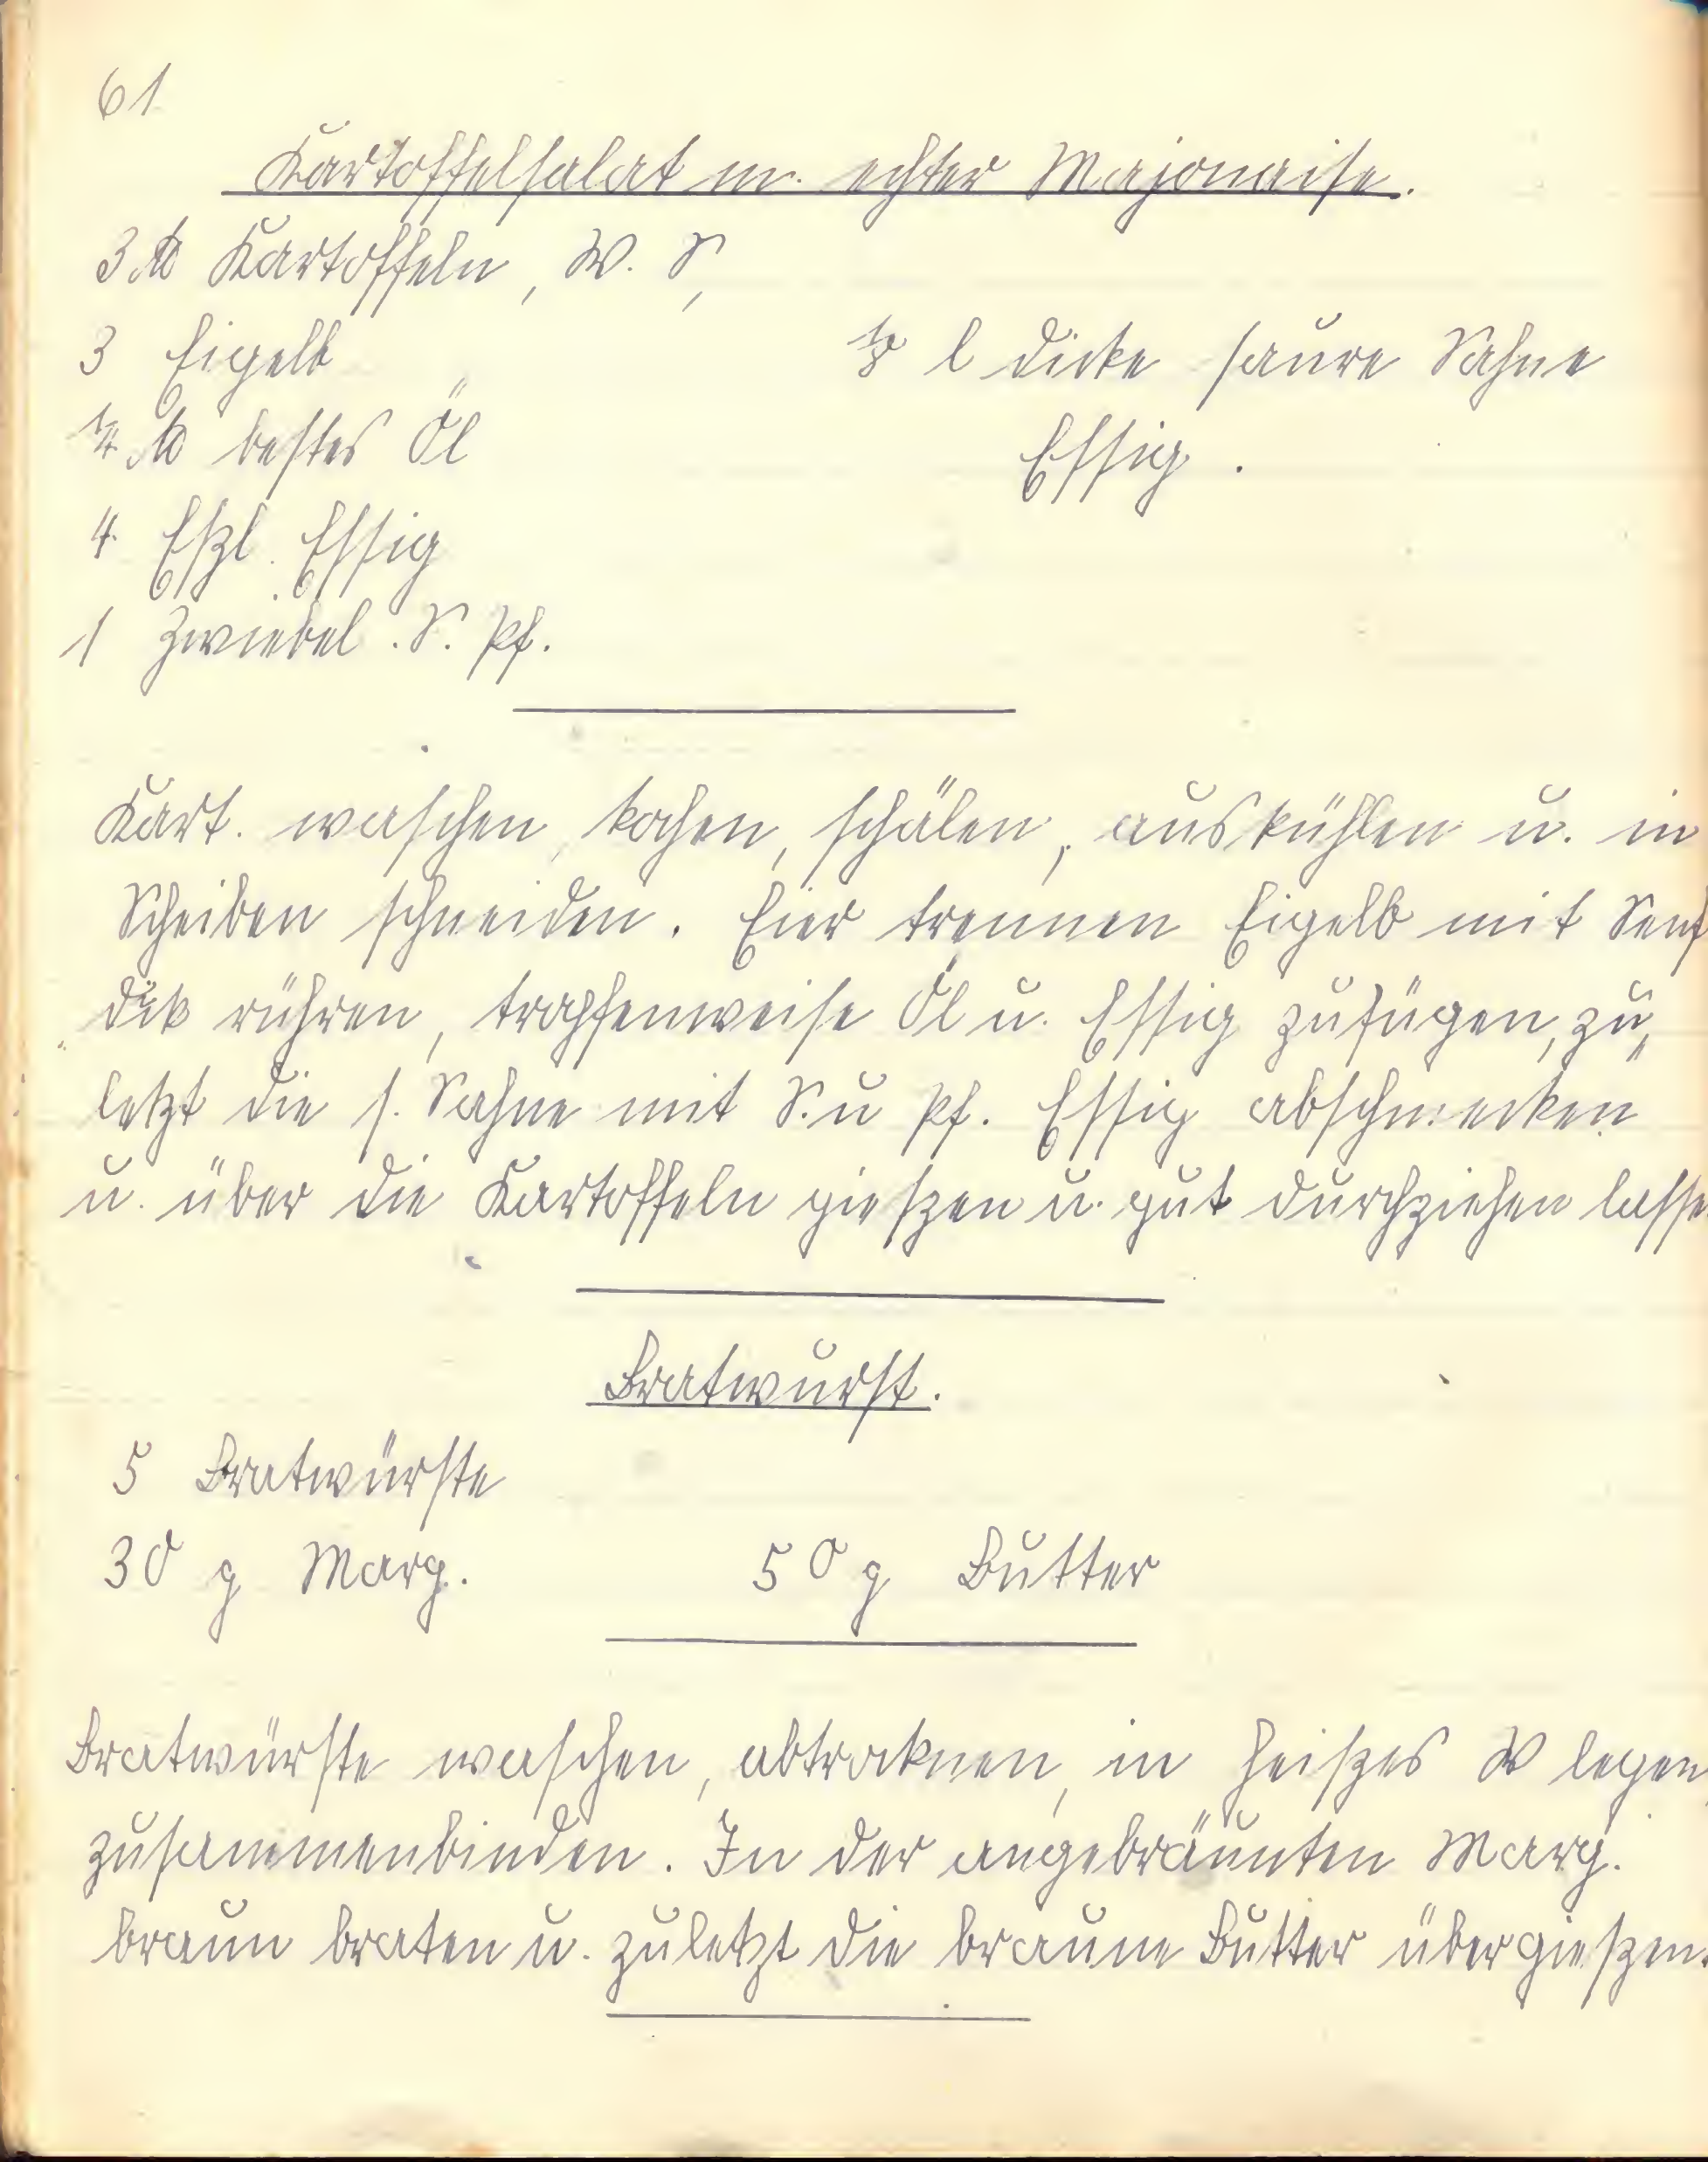 61
Kartoffelsalat m. echter Majonaise.
3 ℔ Kartoffeln, W. S,
3 Eigelb
⅛ l dicke saure Sahne
¼ ℔ bestes Öl
Essig.
4 Eßl. Essig
1 Zwiebel. S. Pf.
Kart. waschen, kochen, schälen, auskühlen u. in
Scheiben schneiden. Eier trennen Eigelb mit Senf
dick rühren, tropfenweise Öl u. Essig zufügen, zu„
letzt die s. Sahne mit S. u Pf. Essig abschmecken
u. über die Kartoffeln gießen u. gut durchziehen lasse
Bratwurst.
5 Bratwürste
30 g Marg. 50 g Butter
Bratwürste waschen, abtrocknen, in heißes W legen,
zusammenbinden. In der angebräunten Marg.
braun braten u. zuletzt die braune Butter übergießen.